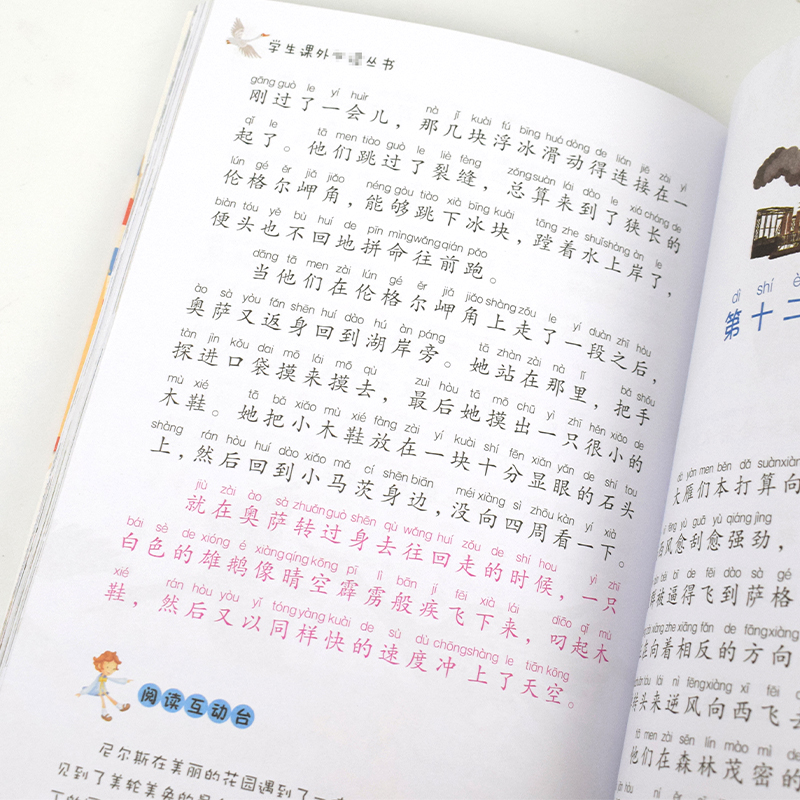 学生课外 丛书
gāng guò le yí huìr nà jǐ kuài fú bīng huá dòng de lián jiē zài yì
刚过了一会儿，那几块浮冰滑动得连接在一
qǐ le tā men tiào guò le liè fèng zǒng suàn lái dào le xiá cháng de
起了。他们跳过了裂缝，总算来到了狭长的
lún gé ěr jiǎ jiǎo néng gòu tiào xià bīng kuài tāng zhe shuǐ shàng àn le
伦格尔岬角，能够跳下冰块，蹚着水上岸了，
biàn tóu yě bù huí de pīn mìng wǎng qián pǎo
便头也不回地拼命往前跑。
dāng tā men zài lún gé ěr jiǎ jiǎo shàng zǒu le yí duàn zhī hòu
当他们在伦格尔岬角上走了一段之后，
ào sà yòu fǎn shēn huí dào hú àn páng tā zhàn zài nà lǐ bǎ shǒu
奥萨又返身回到湖岸旁。她站在那里，把手
tàn jìn kǒu dai mō lái mō qù zuì hòu tā mō chū yì zhī hěn xiǎo de
探进口袋摸来摸去，最后她摸出一只很小的
mù xié tā bǎ xiǎo mù xié fàng zài yí kuài shí fēn xiǎn yǎn de shí tou
木鞋。她把小木鞋放在一块十分显眼的石头
shàng rán hòu huí dào xiǎo mǎ cí shēn biān méi xiàng sì zhōu kàn yí xià
上，然后回到小马茨身边，没向四周看一下。
jiù zài ào sà zhuǎn guò shēn qù wǎng huí zǒu de shí hou yì zhī
就在奥萨转过身去往回走的时候，一只
bái sè de xióng é xiàng qíng kōng pī lì bān jí fēi xià lái diāo qǐ mù
白色的雄鹅像晴空霹雳般疾飞下来，叼起木
xié rán hòu yòu yǐ tóng yàng kuài de sù dù chōng shàng le tiān kōng
鞋，然后又以同样快的速度冲上了天空。
阅读互动台
尼尔斯在美丽的花园遇到了一
见到了美轮美奂的
dì shí
第十二
dà yàn men běn dǎ suàn xiàng
大雁们本打算向
fēng yù guā yù qiáng jìng
风愈刮愈强劲，
bèi bī de fēi dào sà gé
被逼得飞到萨格
xiàng zhe xiāng fǎn de fāng xiàng
向着相反的方向
tóu lái nì fēng xiàng xī fēi
转头来逆风向西飞去
tā men zài sēn lín mào mì de
他们在森林茂密的